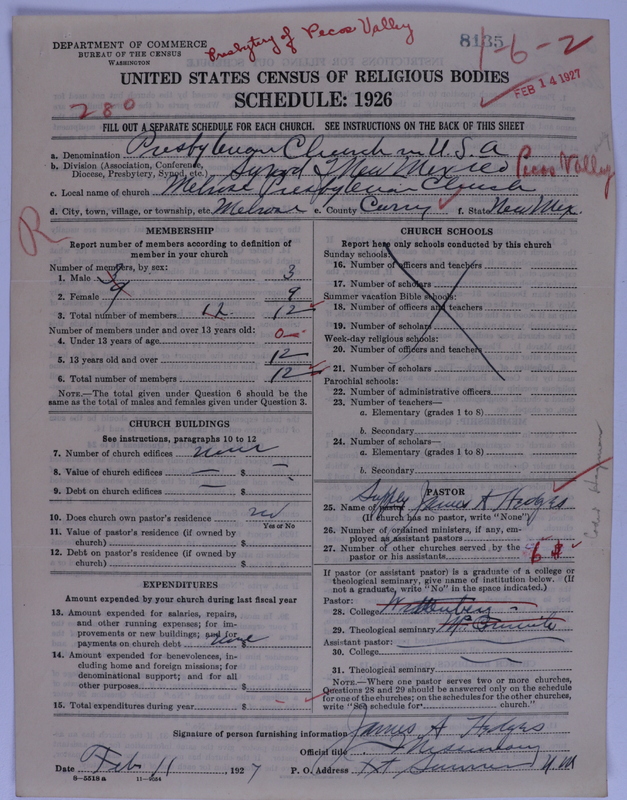 Presbytery of Pecos Valley
8135
1-6-2
FEB 14 1927
DEPARTMENT OF COMMERCE
BUREAU OF THE CENSUS
WASHINGTON
UNITED STATES CENSUS OF RELIGIOUS BODIES
SCHEDULE: 1926
280
FILL OUT A SEPARATE SCHEDULE FOR EACH CHURCH. SEE INSTRUCTIONS ON THE BACK OF THIS SHEET
a. Denomination Presbyterian Church in U.S.A
b. Division (Association, Conference, Diocese, Presbytery, Synod, etc.) Synod of New Mexico Pecos Valley
c. Local name of church Melrose Presbyterian Church
d. City, town, village, or township, etc. Melrose e. County Curry f. State New Mex.
R
MEMBERSHIP
Report number of members according to definition of
member in your church
Number of members, by sex:
1. Male 3 3
2. Female 9 9
3. Total number of members 12 12
Number of members under and over 13 years old:
4. Under 13 years of age 0
5. 13 years old and over 12
6. Total number of members 12
NOTE.—The total given under Question 6 should be the
same as the total of males and females given under Question 3.
CHURCH BUILDINGS
See instructions, paragraphs 10 to 12
7. Number of church edifices none
8. Value of church edifices — $ —
9. Debt on church edifices — $
10. Does church own pastor's residence no
Yes or No
11. Value of pastor's residence (if owned by
church) $
12. Debt on pastor's residence (if owned by
church) $
EXPENDITURES
Amount expended by your church during last fiscal year
13. Amount expended for salaries, repairs,
and other running expenses; for im-
provements or new buildings; and for
payments on church debt none $
14. Amount expended for benevolences, in-
cluding home and foreign missions; for
denominational support; and for all
other purposes $
15. Total expenditures during year $ -
CHURCH SCHOOLS
Report here only schools conducted by this church
Sunday schools:
16. Number of officers and teachers
17. Number of scholars
Summer vacation Bible schools:
18. Number of officers and teachers
19. Number of scholars
Week-day religious schools:
20. Number of officers and teachers
21. Number of scholars
Parochial schools:
22. Number of administrative officers
23. Number of teachers—
a. Elementary (grades 1 to 8)
b. Secondary
24. Number of scholars—
a. Elementary (grades 1 to 8)
b. Secondary
PASTOR
25. Name of pastor Supply James A Hedges
(If church has no pastor, write "None")
26. Number of ordained ministers, if any, em-
ployed as assistant pastors
27. Number of other churches served by the
pastor or his assistants 6
If pastor (or assistant pastor) is a graduate of a college or
theological seminary, give name of institution below. (If
not a graduate, write "No" in the space indicated.)
Pastor:
28. College Wittenberg
29. Theological seminary
Assistant pastor:
30. College
31. Theological seminary
NOTE.—Where one pastor serves two or more churches,
Questions 28 and 29 should be answered only on the schedule
for one of the churches; on the schedules for the other churches,
write "See schedule for church."
Signature of person furnishing information James A Hedges
Official title Missionary
Date Feb 11, 1927 P. O. Address Ft Sumner N. M
8—5518 a